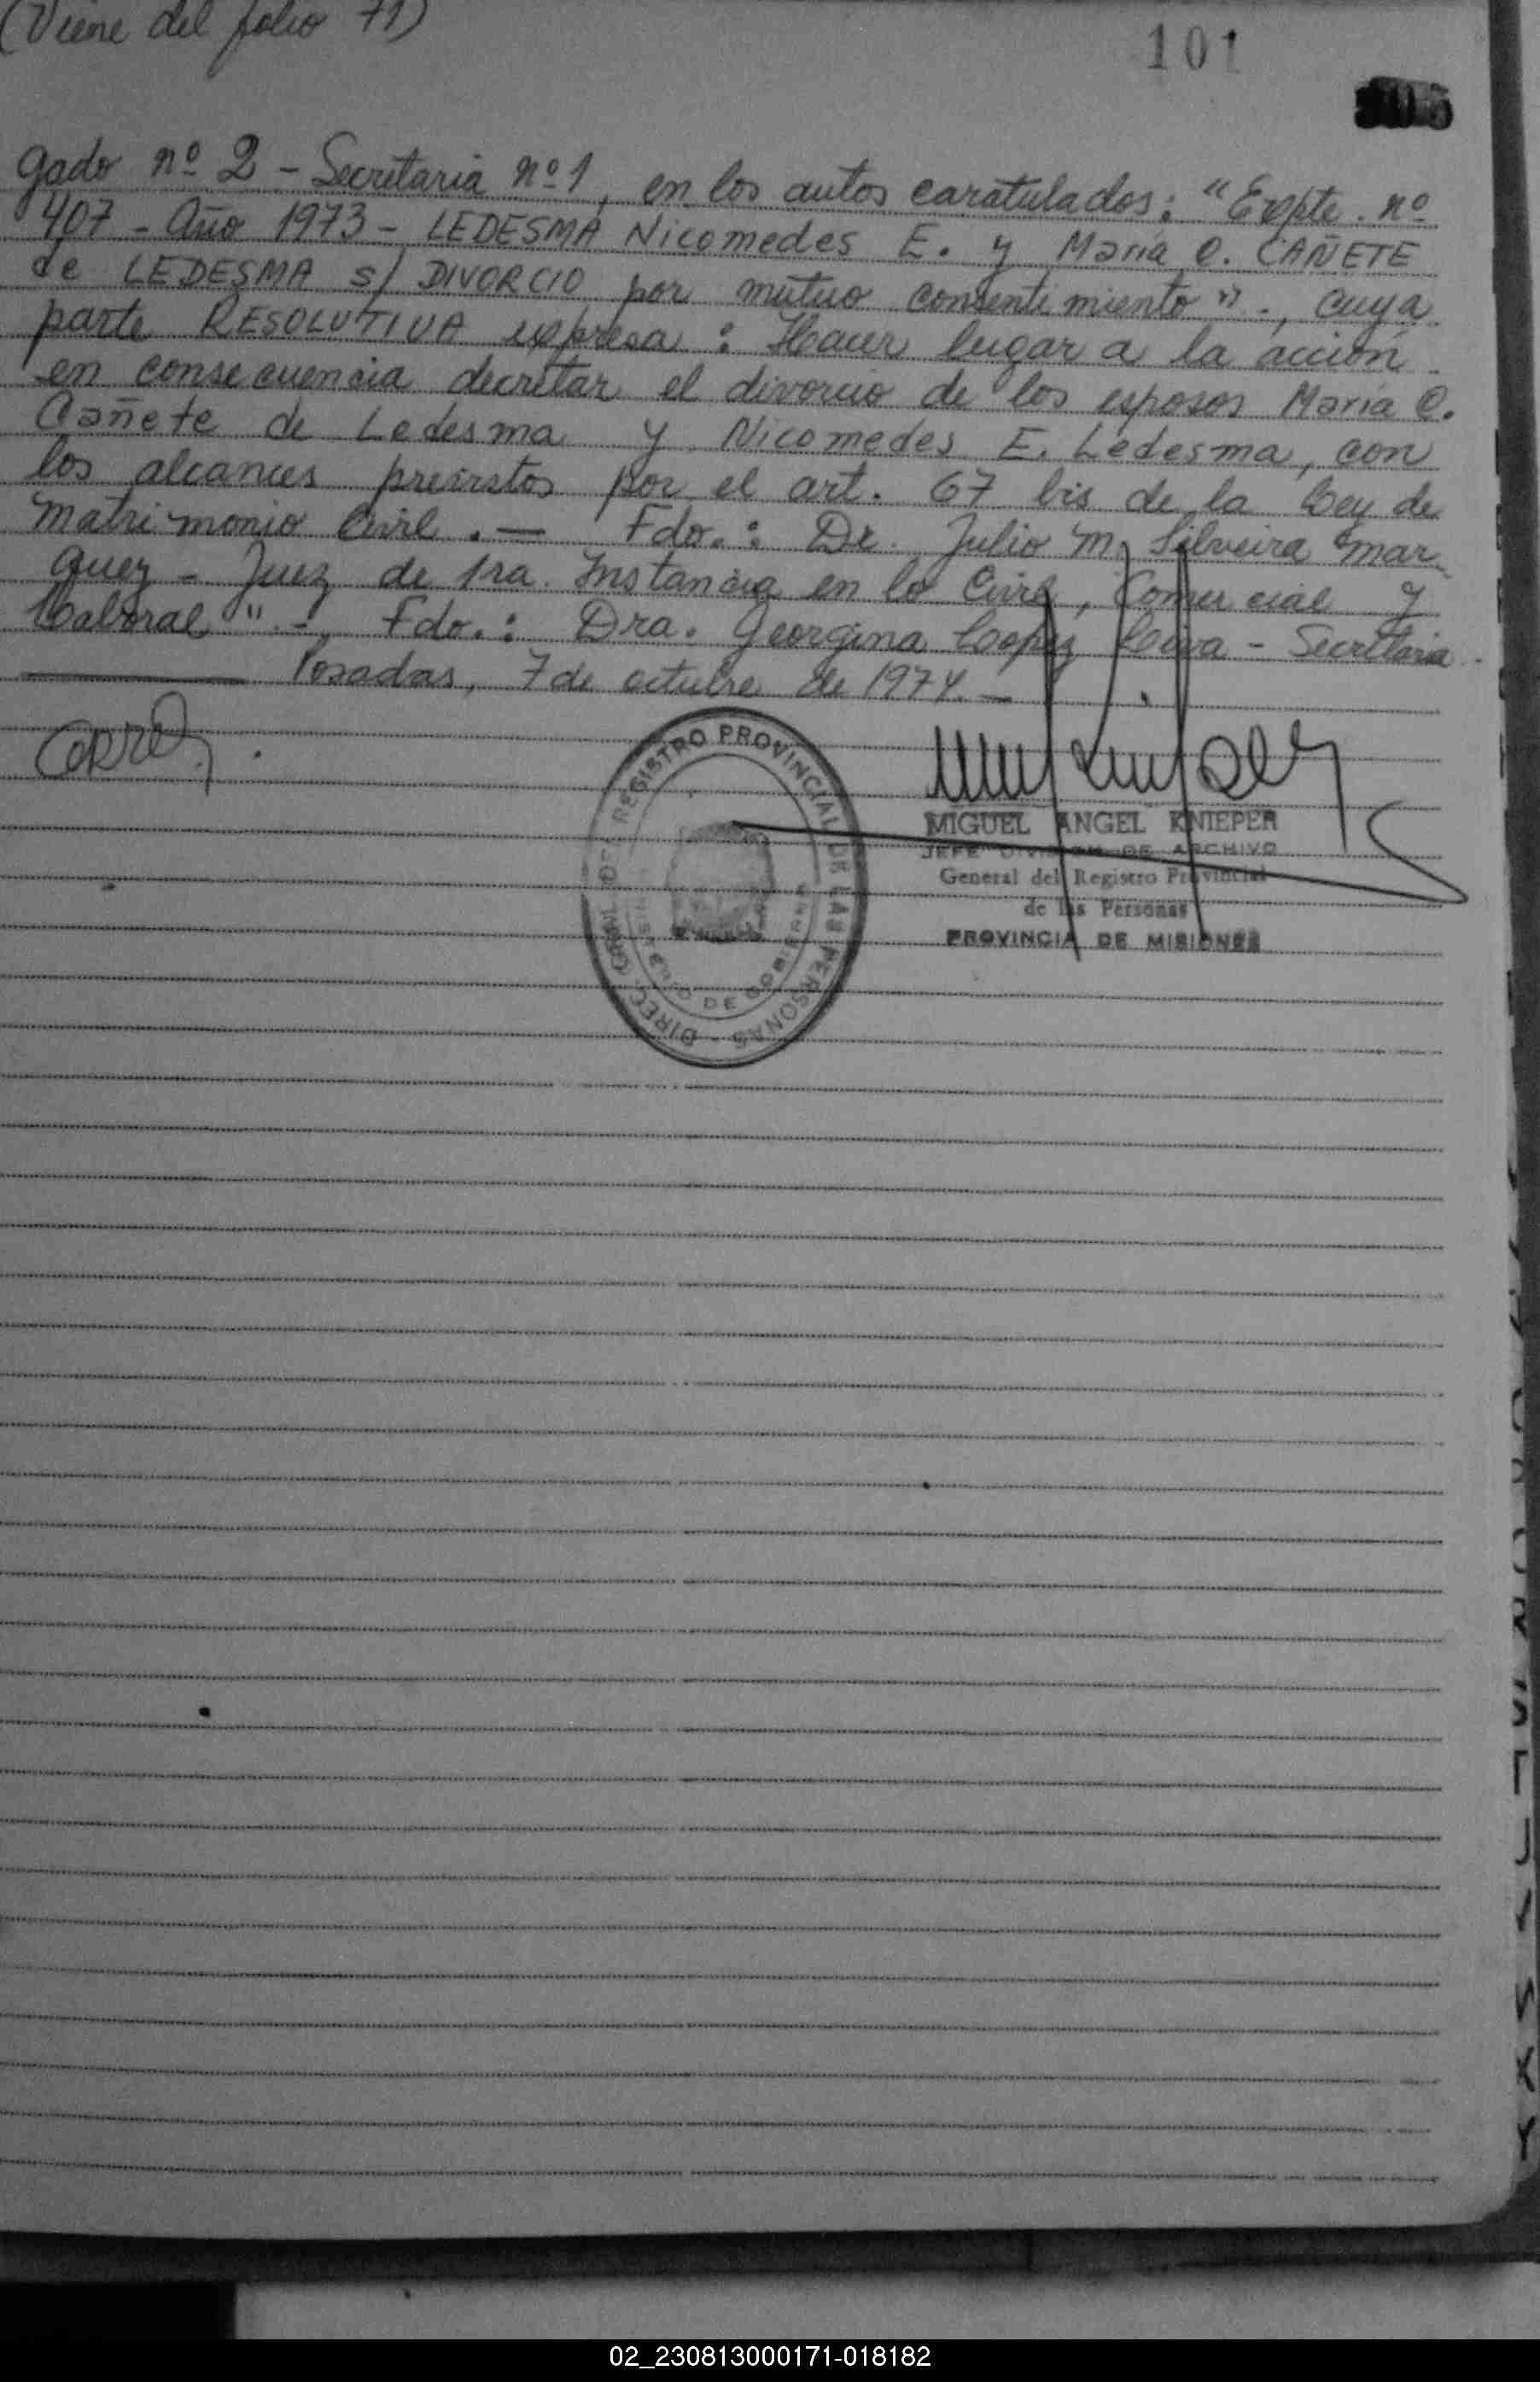 (Viene del folio 71)
101
gado nº 2 - Secretaria nº 1, en los autos caratulados: "Expte. nº
407 - Año 1973 - LEDESMA Nicomedes E. y María C. CAÑETE
de LEDESMA s/ DIVORCIO por mutuo consentimiento"., cuya
parte RESOLUTIVA expresa: Hacer lugar a la acción
en consecuencia decretar el divorcio de los esposos María C.
Cañete de Ledesma y Nicomedes E. Ledesma, con
los alcances previstos por el art. 67 bis de la Ley de
Matrimonio Civil. — Fdo.: Dr. Julio M. Silveira Mar-
quez - Juez de 1ra. Instancia en lo Civil, Comercial y
Laboral" -, Fdo.: Dra. Georgina Lopez Leiva - Secretaria.
Posadas, 7 de octubre de 1974. —
DIRECC. GRAL. DEL REGISTRO PROVINCIAL DE LAS PERSONAS -
MINISTERIO DE GOBIERNO
MIGUEL ANGEL KNIEPER
JEFE DIVISION DE ARCHIVO
General del Registro Provincial
de las Personas
PROVINCIA DE MISIONES
02_230813000171-018182